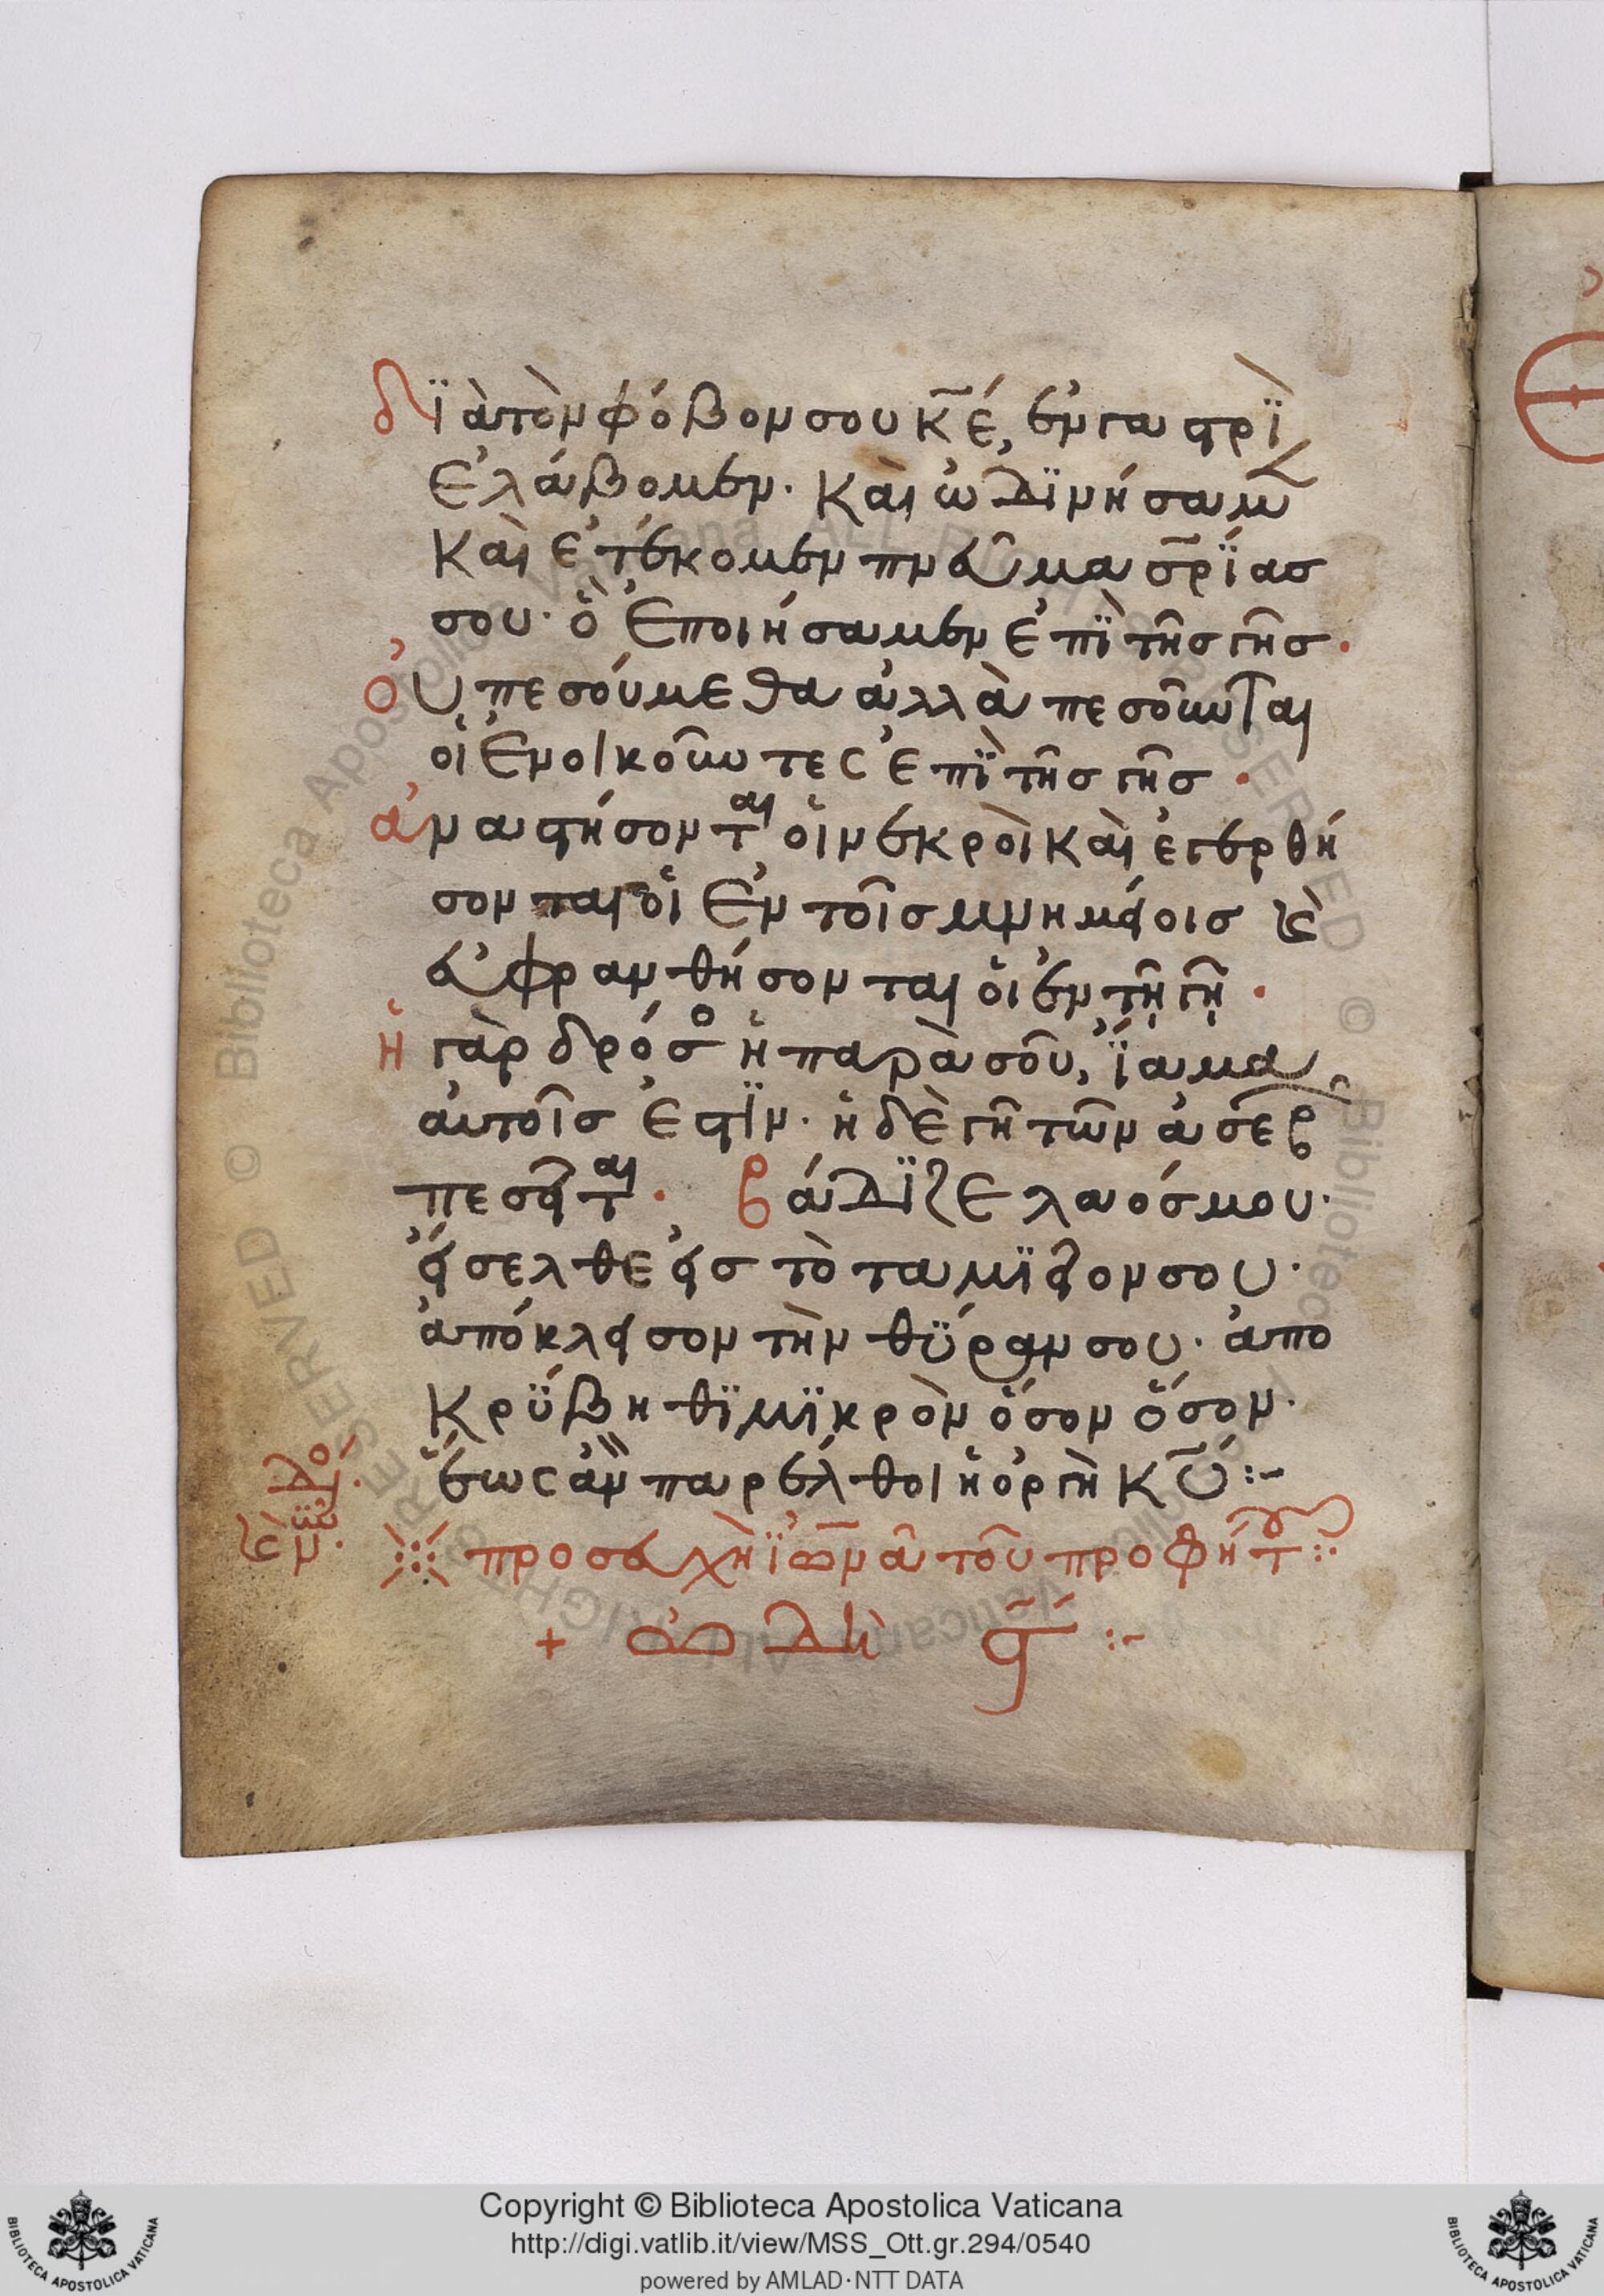 δϊ ἁτὸν φόβον σου κ̅ε̅, ἐν γαστρὶ
ἐλάβομεν· καὶ ὠδϊνήσαμ̅
καὶ ἐτέκομεν πνεῦμα σ̅ρ̅ίασ
σου· ὃ ἐποιήσαμεν ἐπῒ τῆσ γῆσ·
οὐ πεσούμεθα ἀλλὰ πεσοῦνται
οἱ ἐνοικοῦντες ἐπῒ τῆσ γῆσ·
ἀναστήσονται οἱ νεκροὶ καὶ ἐγερθή
σονται οἱ ἐν τοῖσ μνημείοισ κ(αὶ)
εὐφρανθήσονται οἱ ἐν τῇ γῇ·
ἡ γὰρ δρόσος ἡ παρὰ σοῦ, ἴαμα
αὐτοῖσ ἐστϊν· ἡ δὲ γῆ τῶν ἀσεβ
πεσεῖται· βάδϊζε λαόσ μου·
εἴσελθε εἰσ τὸ ταμϊεῖον σου·
ἀπόκλεισον τὴν θύραν σου· ἀπο
κρύβηθϊ μϊκρὸν ὅσον ὅσον·
ἕως ἂν παρέλθοι ἡ ὀργὴ κ̅υ̅:~
προσευχὴ ϊωνᾶ τοῦ προφήτου:
+ ὠδὴ ϛ̅ :~
Copyright © Biblioteca Apostolica Vaticana
http://digi.vatlib.it/view/MSS_Ott.gr.294/0540
powered by AMLAD·NTT DATA
BIBLIOTECA APOSTOLICA VATICANA
BIBLIOTECA APOSTOLICA VATICANA